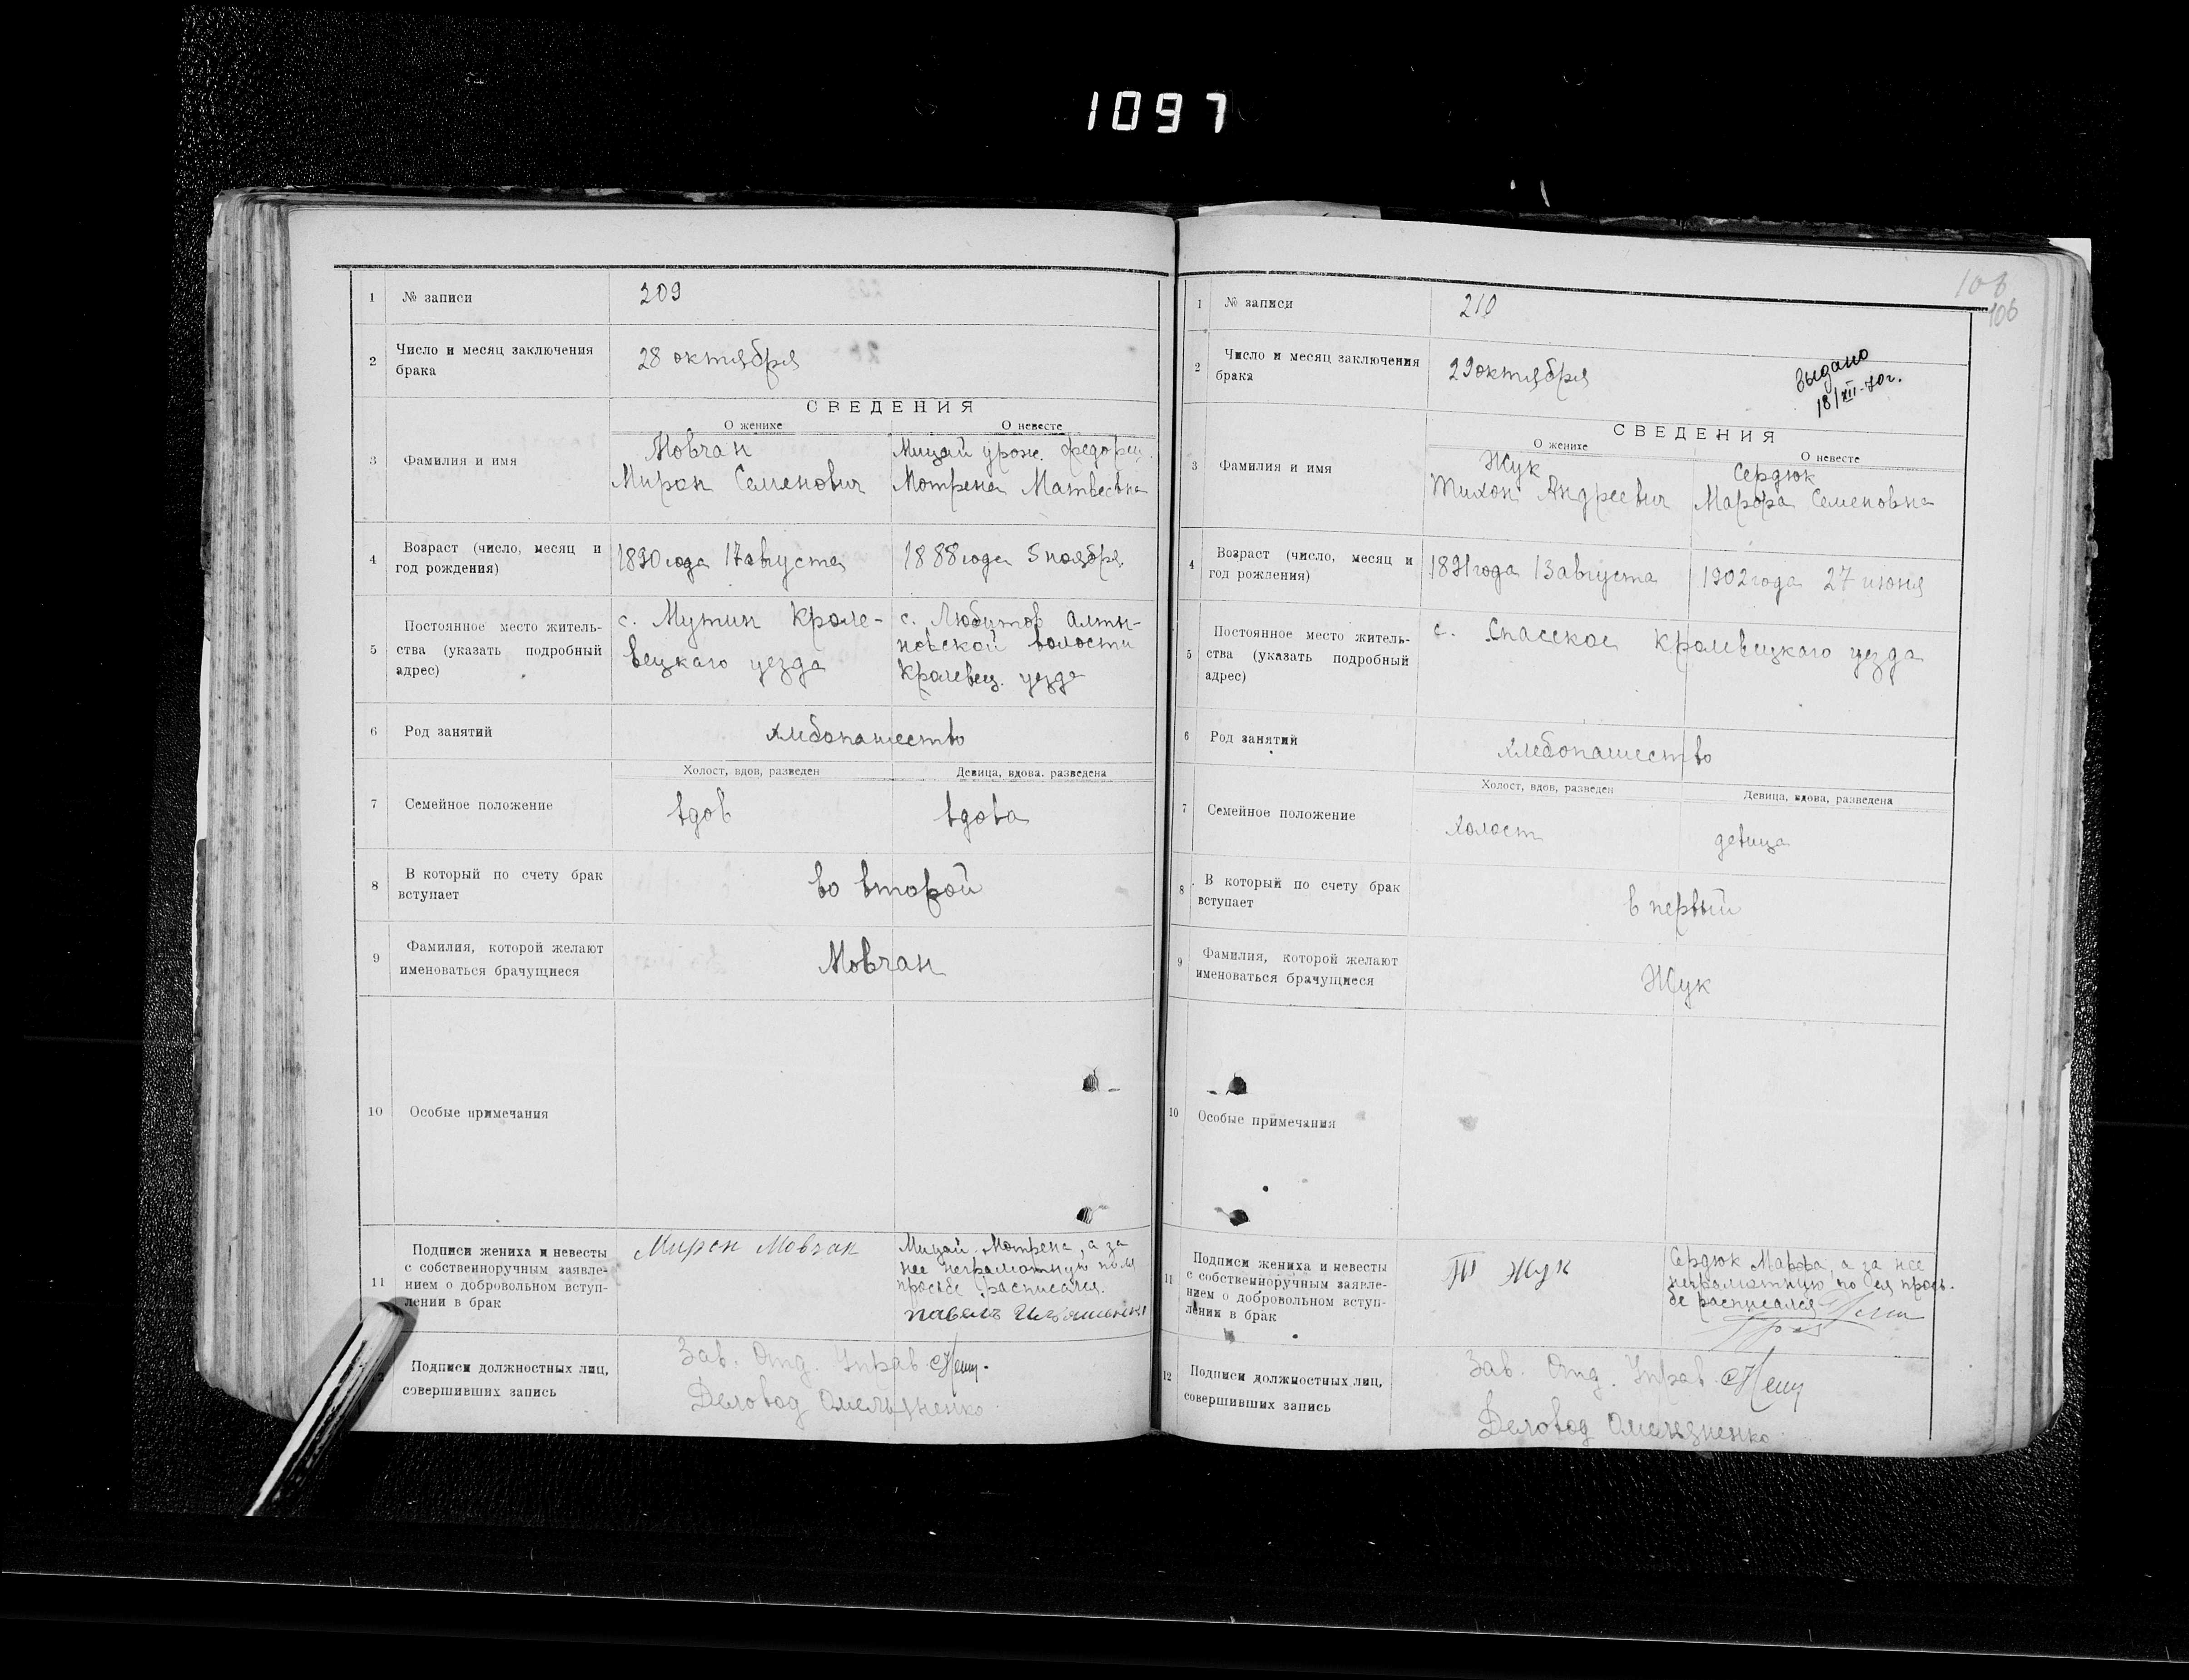 1097
1 № записи 209
2 Число и месяц заключения
брака
28 октября
СВЕДЕНИЯ
О женихе О невесте
3 Фамилия и имя
Мовчан
Мирон Семенович
Мицай урож. Федорец.
Мотрена Матвеевна
4 Возраст (число, месяц и
год рождения)
1890 года 17 августа
1888 года 5 ноября.
5 Постоянное место житель-
ства (указать подробный
адрес)
с. Мутин Кроле-
вецкаго уезда
с. Любитов Алты-
новской волости
Кролевец. уезда
6 Род занятий
хлебопашество
Холост, вдов, разведен Девица, вдова, разведена
7 Семейное положение
вдов вдова
8 В который по счету брак
вступает
во второй
9 Фамилия, которой желают
именоваться брачущиеся
Мовчан
10 Особые примечания
11 Подписи жениха и невесты
с собственноручным заявле-
нием о добровольном вступ-
лении в брак
Мирон Мовчан
Мицай Мотрена, а за
нее неграмотную по ея
просьбе расписался.
Павелъ
Подписи должностных лиц,
совершивших запись
Зав. Отд. Управ
Деловод Омельяненко
108
106
1 № записи 210
2 Число и месяц заключения
брака
29 октября
Выдано
18/XII-70г.
СВЕДЕНИЯ
О женихе О невесте
3 Фамилия и имя
Жук
Тихон Андреевич
Сердюк
Марфа Семеновна
4 Возраст (число, месяц и
год рождения)
1891 года 13 августа
1902 года 27 июня
5 Постоянное место житель-
ства (указать подробный
адрес)
с. Спасское Кролевецкаго уезда
6 Род занятий
хлебопашество
Холост, вдов, разведен Девица, вдова, разведена
7 Семейное положение
холост девица
8 В который по счету брак
вступает
в первый
9 Фамилия, которой желают
именоваться брачущиеся
Жук
10 Особые примечания
11 Подписи жениха и невесты
с собственноручным заявле-
нием о добровольном вступ-
лении в брак
Т Жук
Сердюк Марфа, а за нее
неграмотную по ея прось-
бе расписался
12 Подписи должностных лиц,
совершивших запись
Зав. Отд. Управ
Деловод Омельяненко